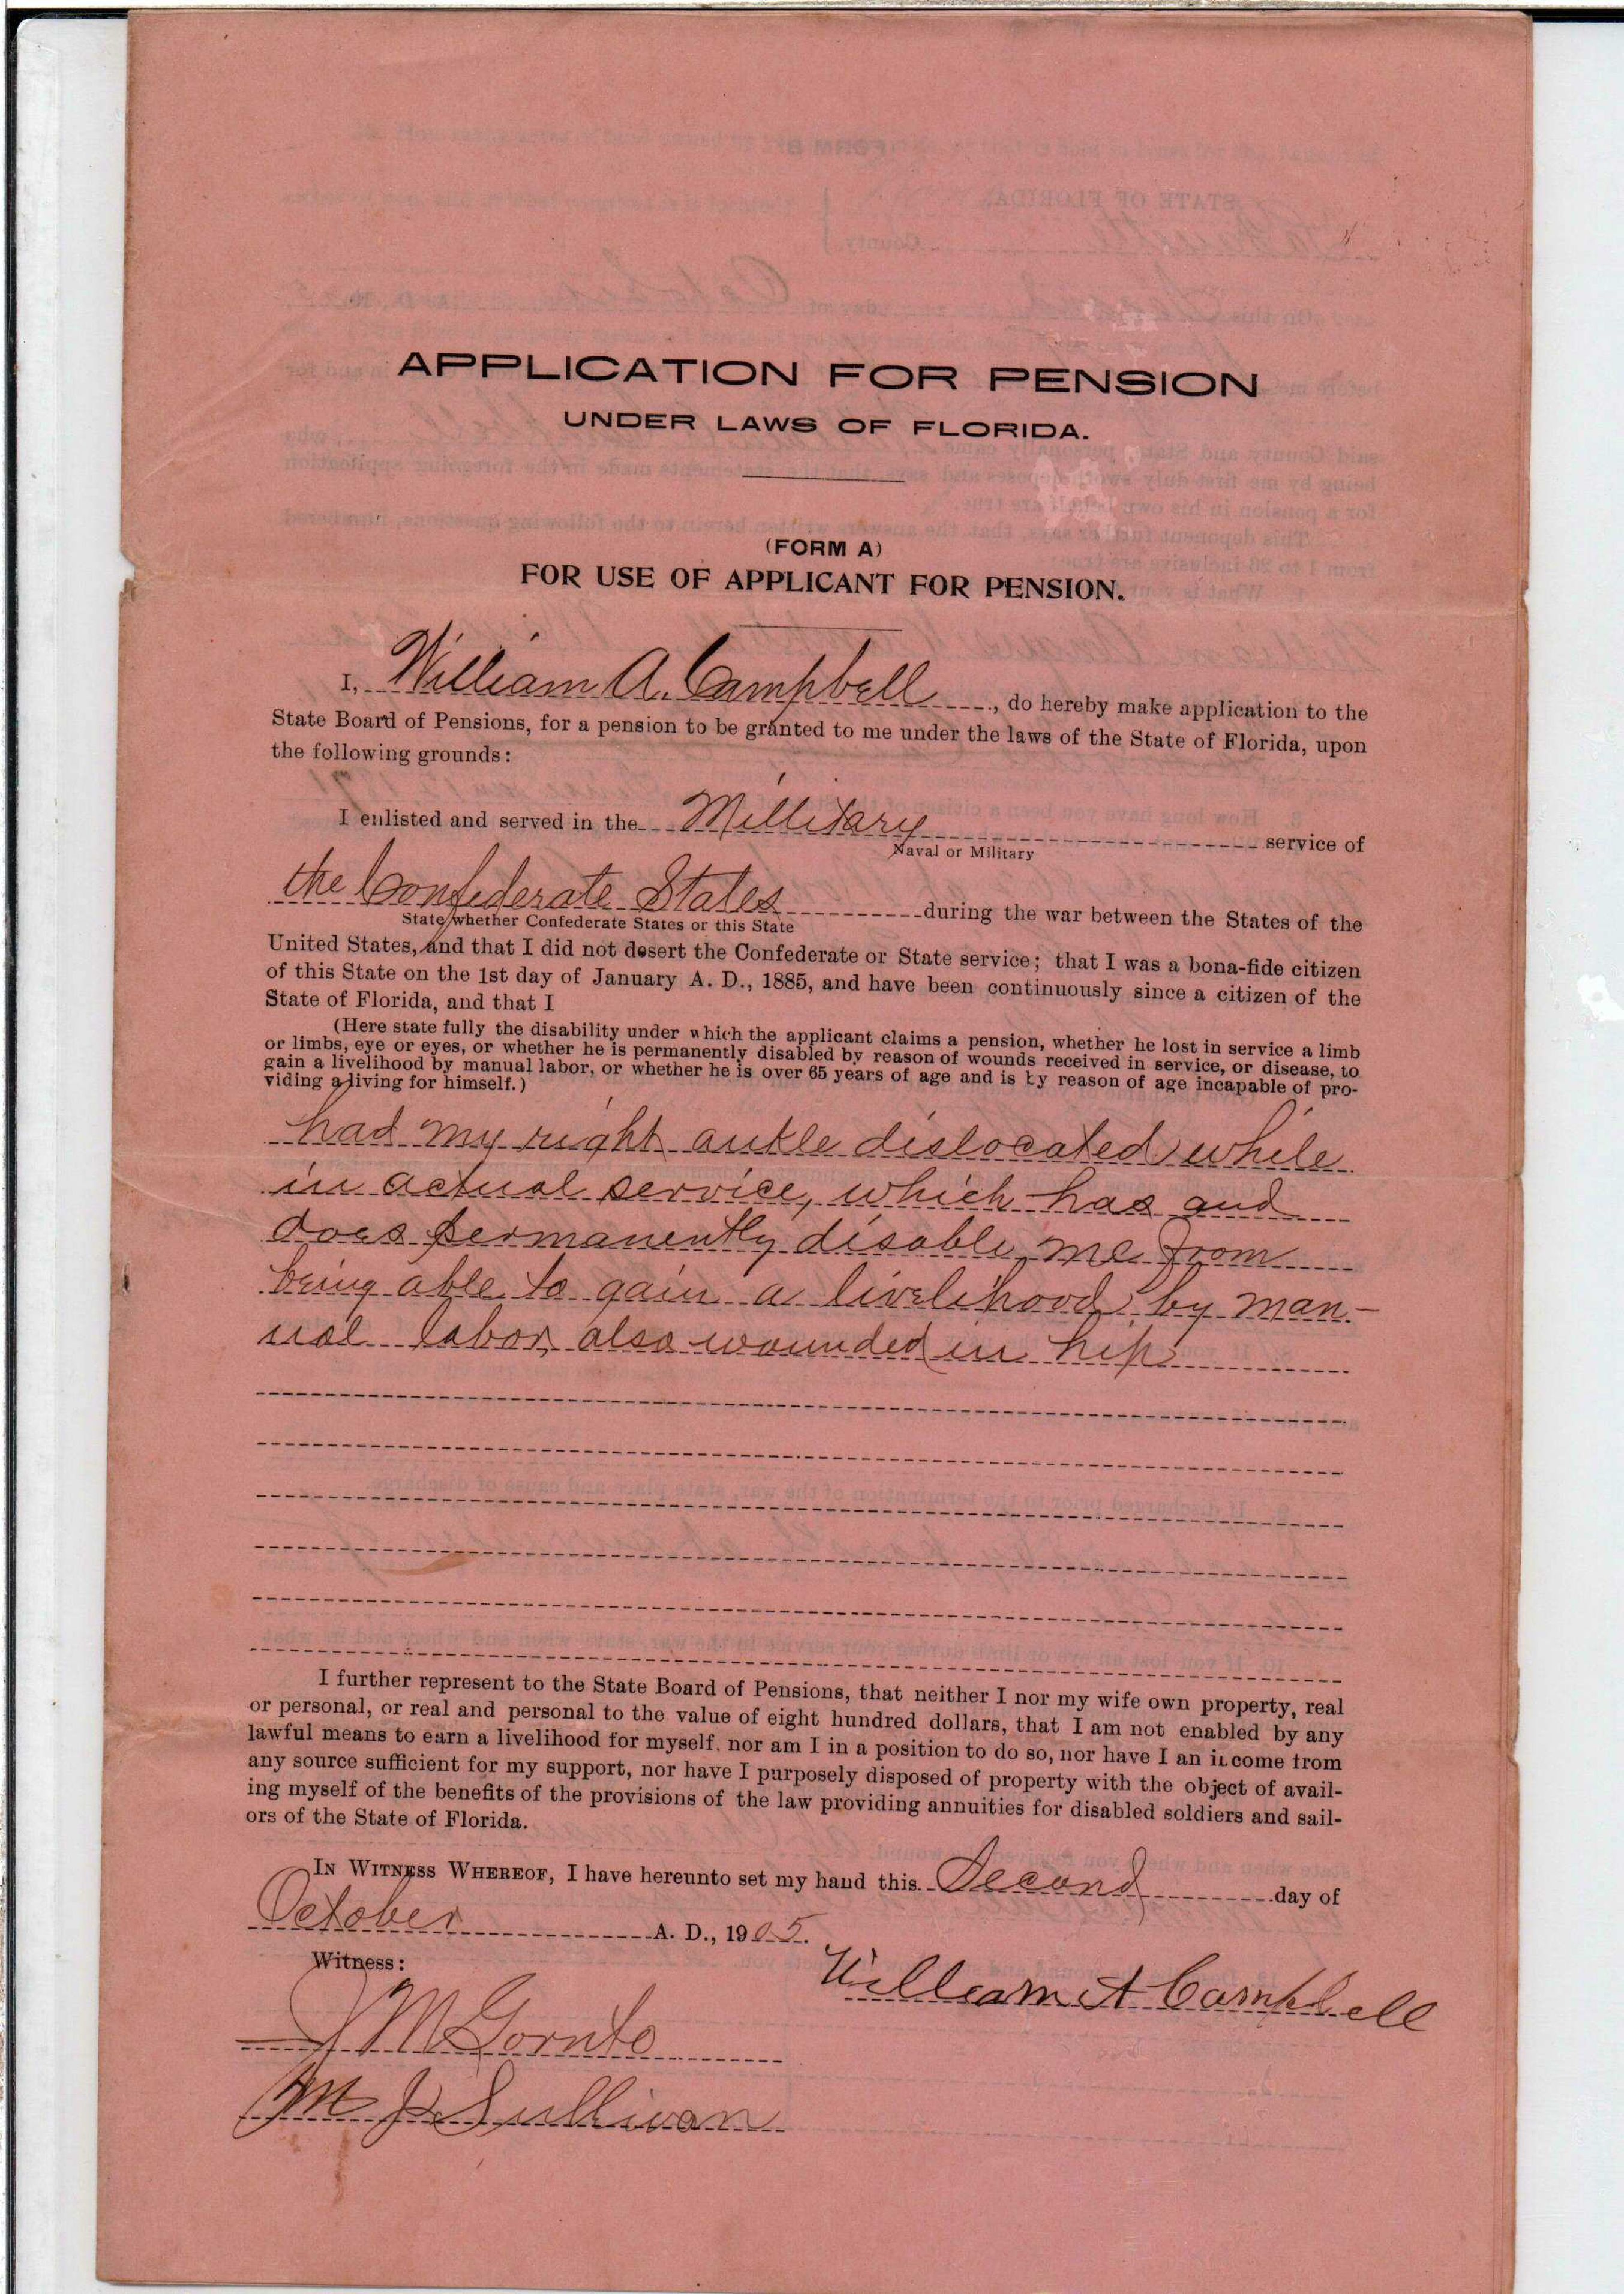 APPLICATION FOR PENSION
UNDER LAWS OF FLORIDA.
(FORM A)
FOR USE OF APPLICANT FOR PENSION.
I, William A. Campbell, do hereby make application to the
State Board of Pensions, for a pension to be granted to me under the laws of the State of Florida, upon
the following grounds:
I enlisted and served in the Millitary service of
Naval or Military
the Confederate States during the war between the States of the
State whether Confederate States or this State
United States, and that I did not desert the Confederate or State service; that I was a bona-fide citizen
of this State on the 1st day of January A. D., 1885, and have been continuously since a citizen of the
State of Florida, and that I
(Here state fully the disability under which the applicant claims a pension, whether he lost in service a limb
or limbs, eye or eyes, or whether he is permanently disabled by reason of wounds received in service, or disease, to
gain a livelihood by manual labor, or whether he is over 65 years of age and is by reason of age incapable of pro-
viding a living for himself.)
had my right ankle dislocated while
in actual service, which has and
does permanently disable me from
being able to gain a livelihood by man-
ual labor, also wounded in hip
I further represent to the State Board of Pensions, that neither I nor my wife own property, real
or personal, or real and personal to the value of eight hundred dollars, that I am not enabled by any
lawful means to earn a livelihood for myself, nor am I in a position to do so, nor have I an income from
any source sufficient for my support, nor have I purposely disposed of property with the object of avail-
ing myself of the benefits of the provisions of the law providing annuities for disabled soldiers and sail-
ors of the State of Florida.
IN WITNESS WHEREOF, I have hereunto set my hand this Second day of
October A. D., 1905.
Witness:
William A Campbell
J M Gornto
M J Sullivan